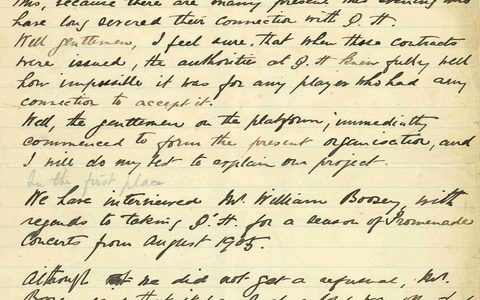 This, because there are many present this evening who
have long severed their connection with Q. H.
Well gentlemen, I feel sure, that when those contracts
were issued, the authorities at Q. H knew fully well
how impossible it was for any player who had any
conviction to accept it.
Well, the gentlemen on the platform, immediately
commenced to form the present organisation, and
I will do my best to explain our project.
In the first place
We have interviewed Mr. William Boosey, with
regards to taking Q. H. for a season of Promenade
Concerts from August 1905.
Although we did not get a refusal, Mr.